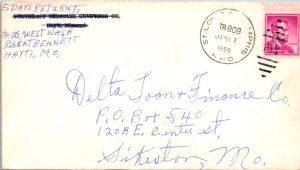 5 DAYS RETURN TO
SOUTHEAST MISSOURI COMPRESS CO.
Hayti, Missouri
307 B, WEST WASH
ROBERT BENNETT
HAYTI, MO.
ST. LO
MPHIS
TR 808
1959
Delta Loan & Finance Co.
P.O. Box 540
120A E. Center St,
Sikeston, Mo.